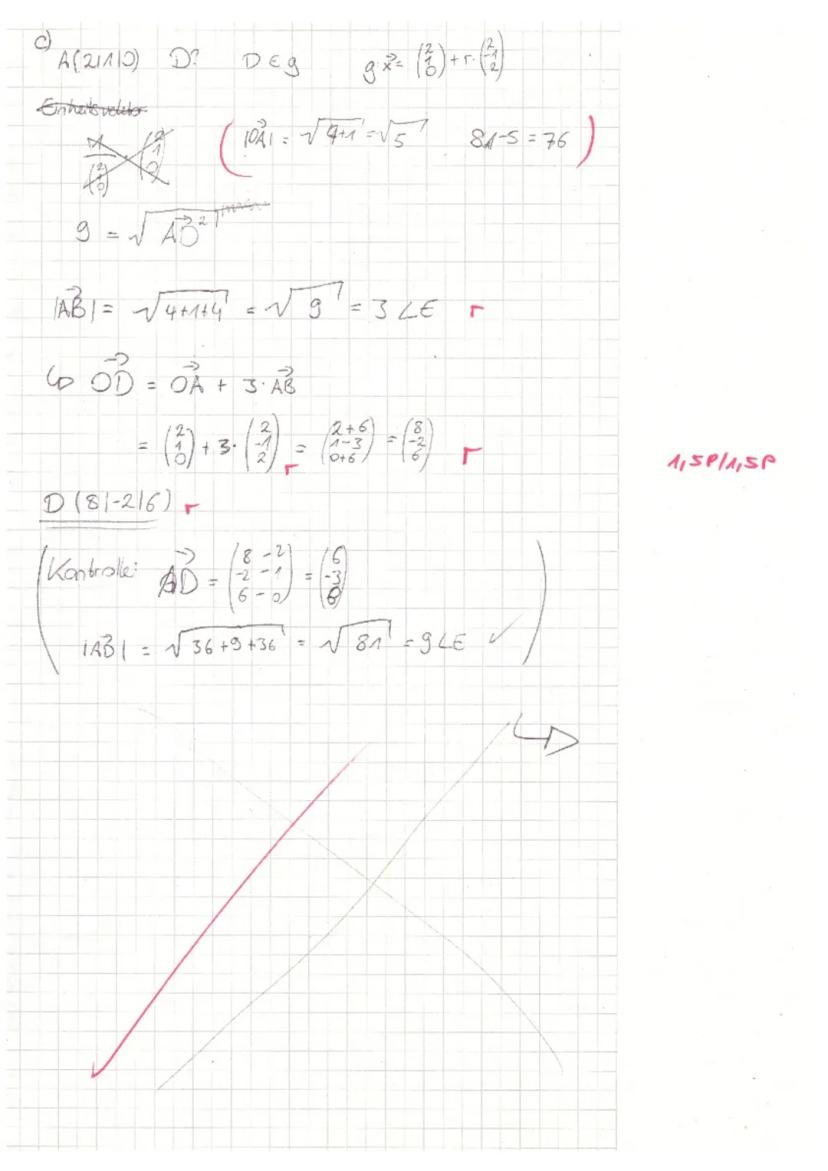 c)
A(2|1|0) D? D ∈ g g: x⃗ = (2 1 0) + r · (2 -1 2)
Einheitsvektor
1 (2 1 0)
(2 1 0)
( |OA⃗| = √(4+1) = √5 81-5 = 76 )
9 = √(AD⃗²)
|AB⃗| = √(4+1+4) = √9 = 3 LE r
↳ OD⃗ = OA⃗ + 3 · AB⃗
= (2 1 0) + 3 · (2 -1 2) r = (2+6 1-3 0+6) = (8 -2 6) r
1,5P/1,5P
D (8|-2|6) r
( Kontrolle: AD⃗ = (8-2 -2-1 6-0) = (6 -3 6)
|AB⃗| = √(36+9+36) = √81 = 9 LE ✓ )